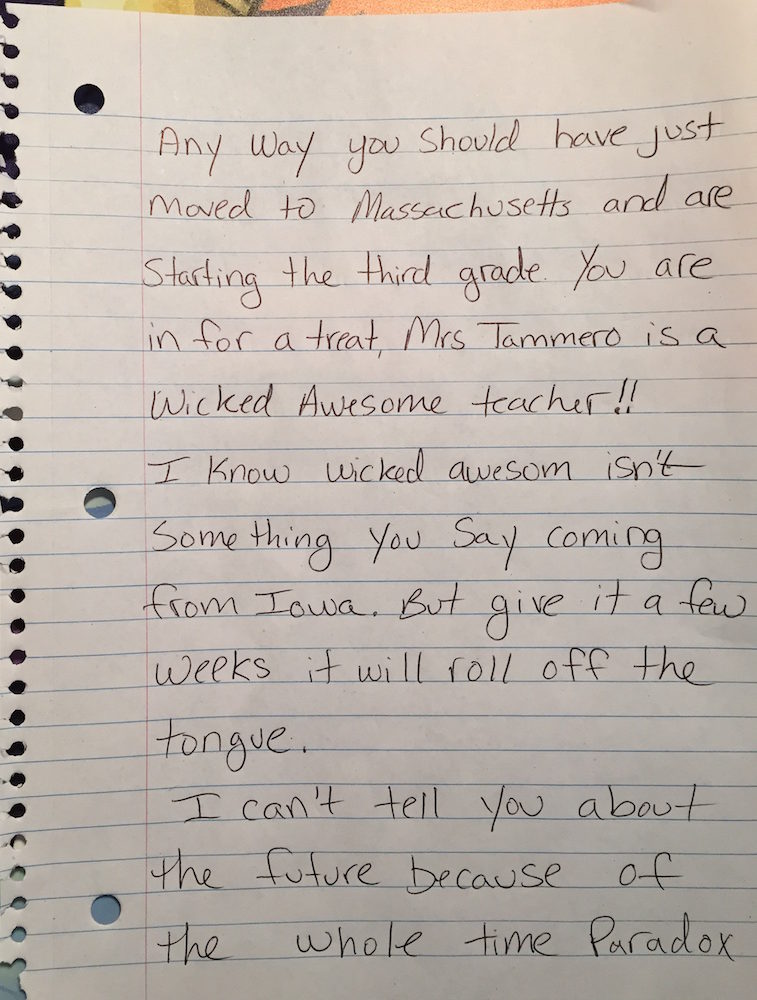 Any Way you Should have just
moved to Massachusetts and are
Starting the third grade. You are
in for a treat, Mrs Tammero is a
Wicked Awesome teacher!!
I Know wicked awesom isn't
Something You Say coming
from Iowa. But give it a few
weeks it will roll off the
tongue.
I can't tell you about
the future because of
the whole time Paradox